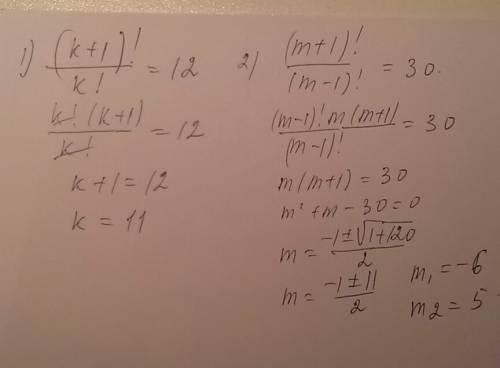 1) (k+1)! / k! = 12
k! (k+1) / k! = 12
k+1 = 12
k = 11
2) (m+1)! / (m-1)! = 30.
(m-1)! m (m+1) / (m-1)! = 30
m(m+1) = 30
m² + m - 30 = 0
m = -1 ± √1+120 / 2
m = -1 ± 11 / 2
m₁ = -6
m2 = 5